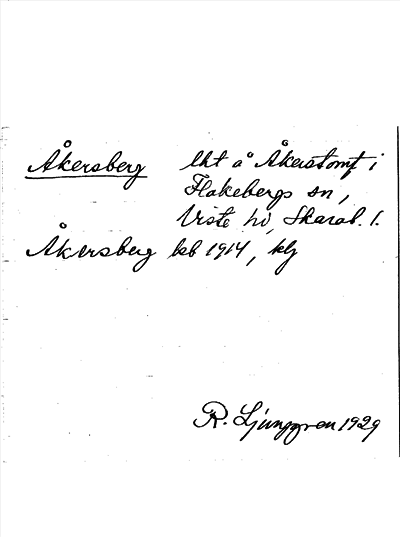 Åkersberg lht å Åkerstomt i
Flakebergs sn,
Viste hd, Skarab. l.
Åkersberg kb 1914, klj
R. Ljunggren 1929